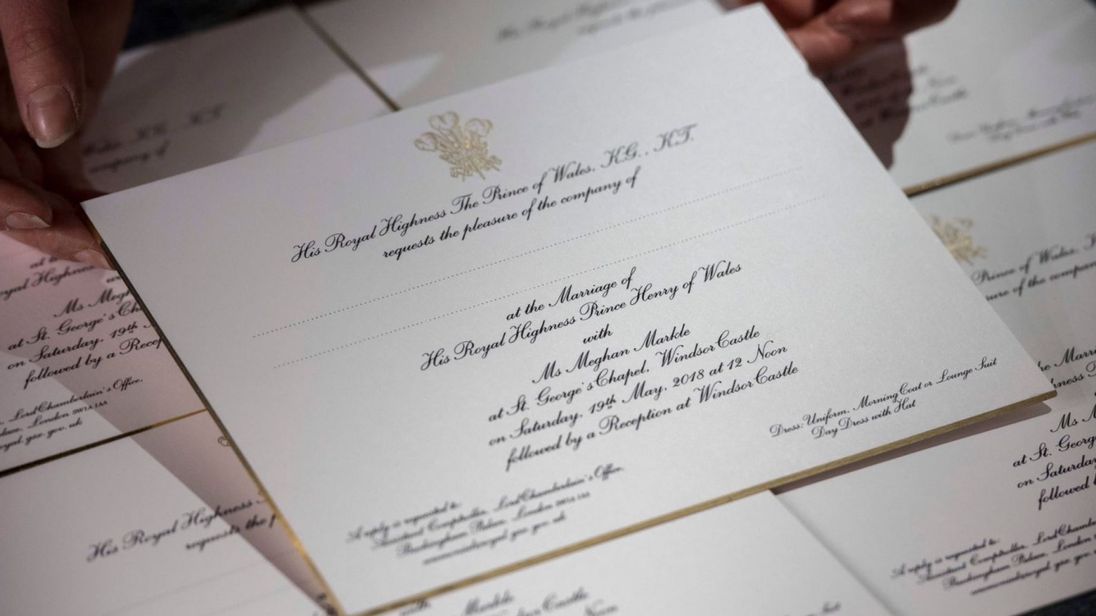 His Royal Highness The Prince of Wales, KG., KT.
requests the pleasure of the company of
at the Marriage of
His Royal Highness Prince Henry of Wales
with
Ms Meghan Markle
at St. George's Chapel, Windsor Castle
on Saturday, 19th May, 2018 at 12 Noon
followed by a Reception at Windsor Castle
Dress: Uniform, Morning Coat or Lounge Suit
Day Dress with Hat
A reply is requested to:
Comptroller, Lord Chamberlain's Office,
Buckingham Palace, London SW1A 1AA
company of
Ms Megh
at St. George's
on Saturday, 19th M
followed by a Recep
Lord Chamberlain's Office,
London SW1A 1AA
His Royal Highness
requests the p
Markle
Windsor Castle
Prince of Wales, K
sure of the company
at the Mar
Ms M
at St. George
on Saturday
followed b
A reply is requested to:
Comptroller, Lord Chamber
Buckingham Palace, London